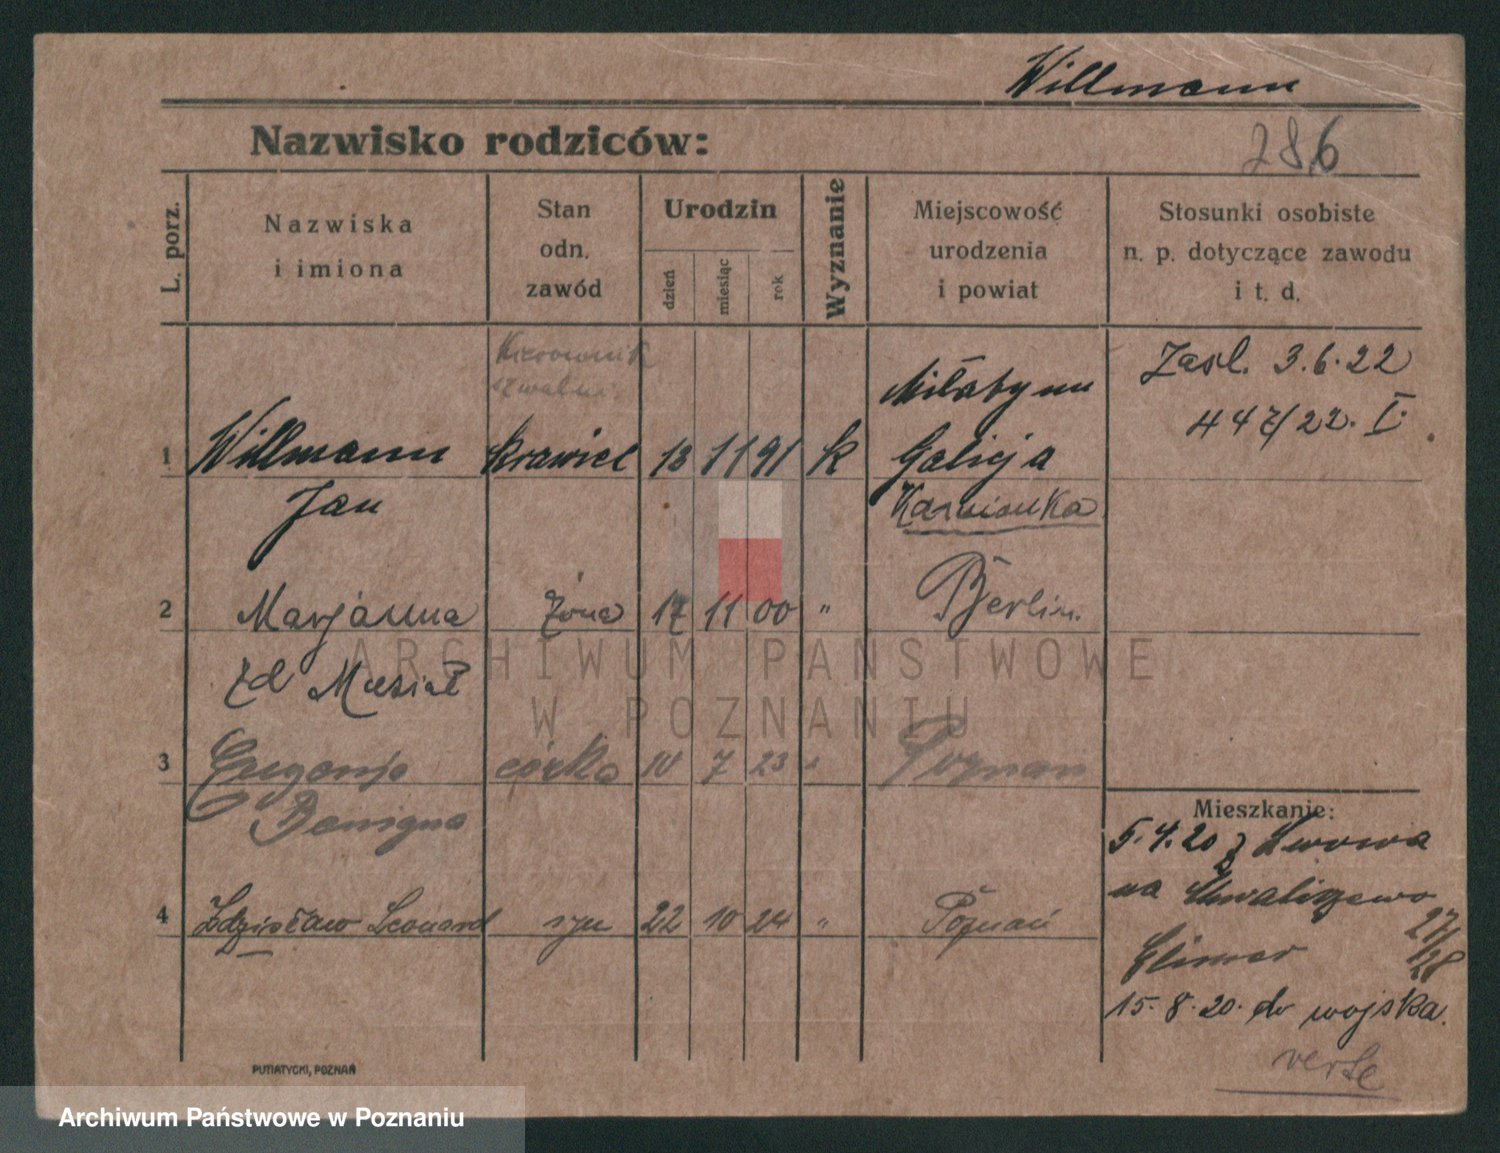 Willmann
Nazwisko rodziców:
286
L. porz.
Nazwiska
i imiona
Stan
odn.
zawód
Urodzin
dzień
miesiąc
rok
Wyznanie
Miejscowość
urodzenia
i powiat
Stosunki osobiste
n. p. dotyczące zawodu
i t. d.
Kierownik
szwalni
Zasl. 3.6.22
447/22. I.
1 Willmann krawiec 18 11 91 k Galicja
Jan
Kamionka
2 Marjanna żona 17 11 00 " Berlin.
zd Musiał
ARCHIWUM PAŃSTWOWE
W POZNANIU
3 córka 10 7 23 " Poznań
Benigna
Mieszkanie:
5.4.20 z Lwowa
na Chwaliszewo
27/28
4 Zdzisław Leonard syn 22 10 24 " Poznań
15.8.20. do wojska.
verte
PUTIATYCKI, POZNAŃ
Archiwum Państwowe w Poznaniu